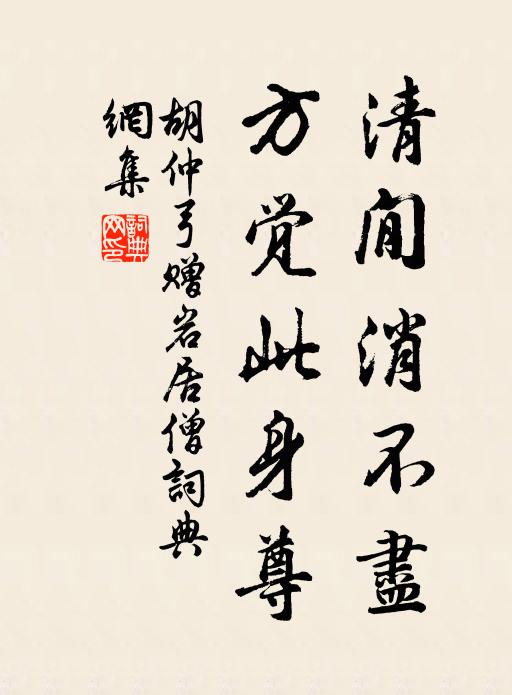 清閒消不盡
方觉此身尊
胡仲弓赠岩居僧詞典
網集
詞典
网印